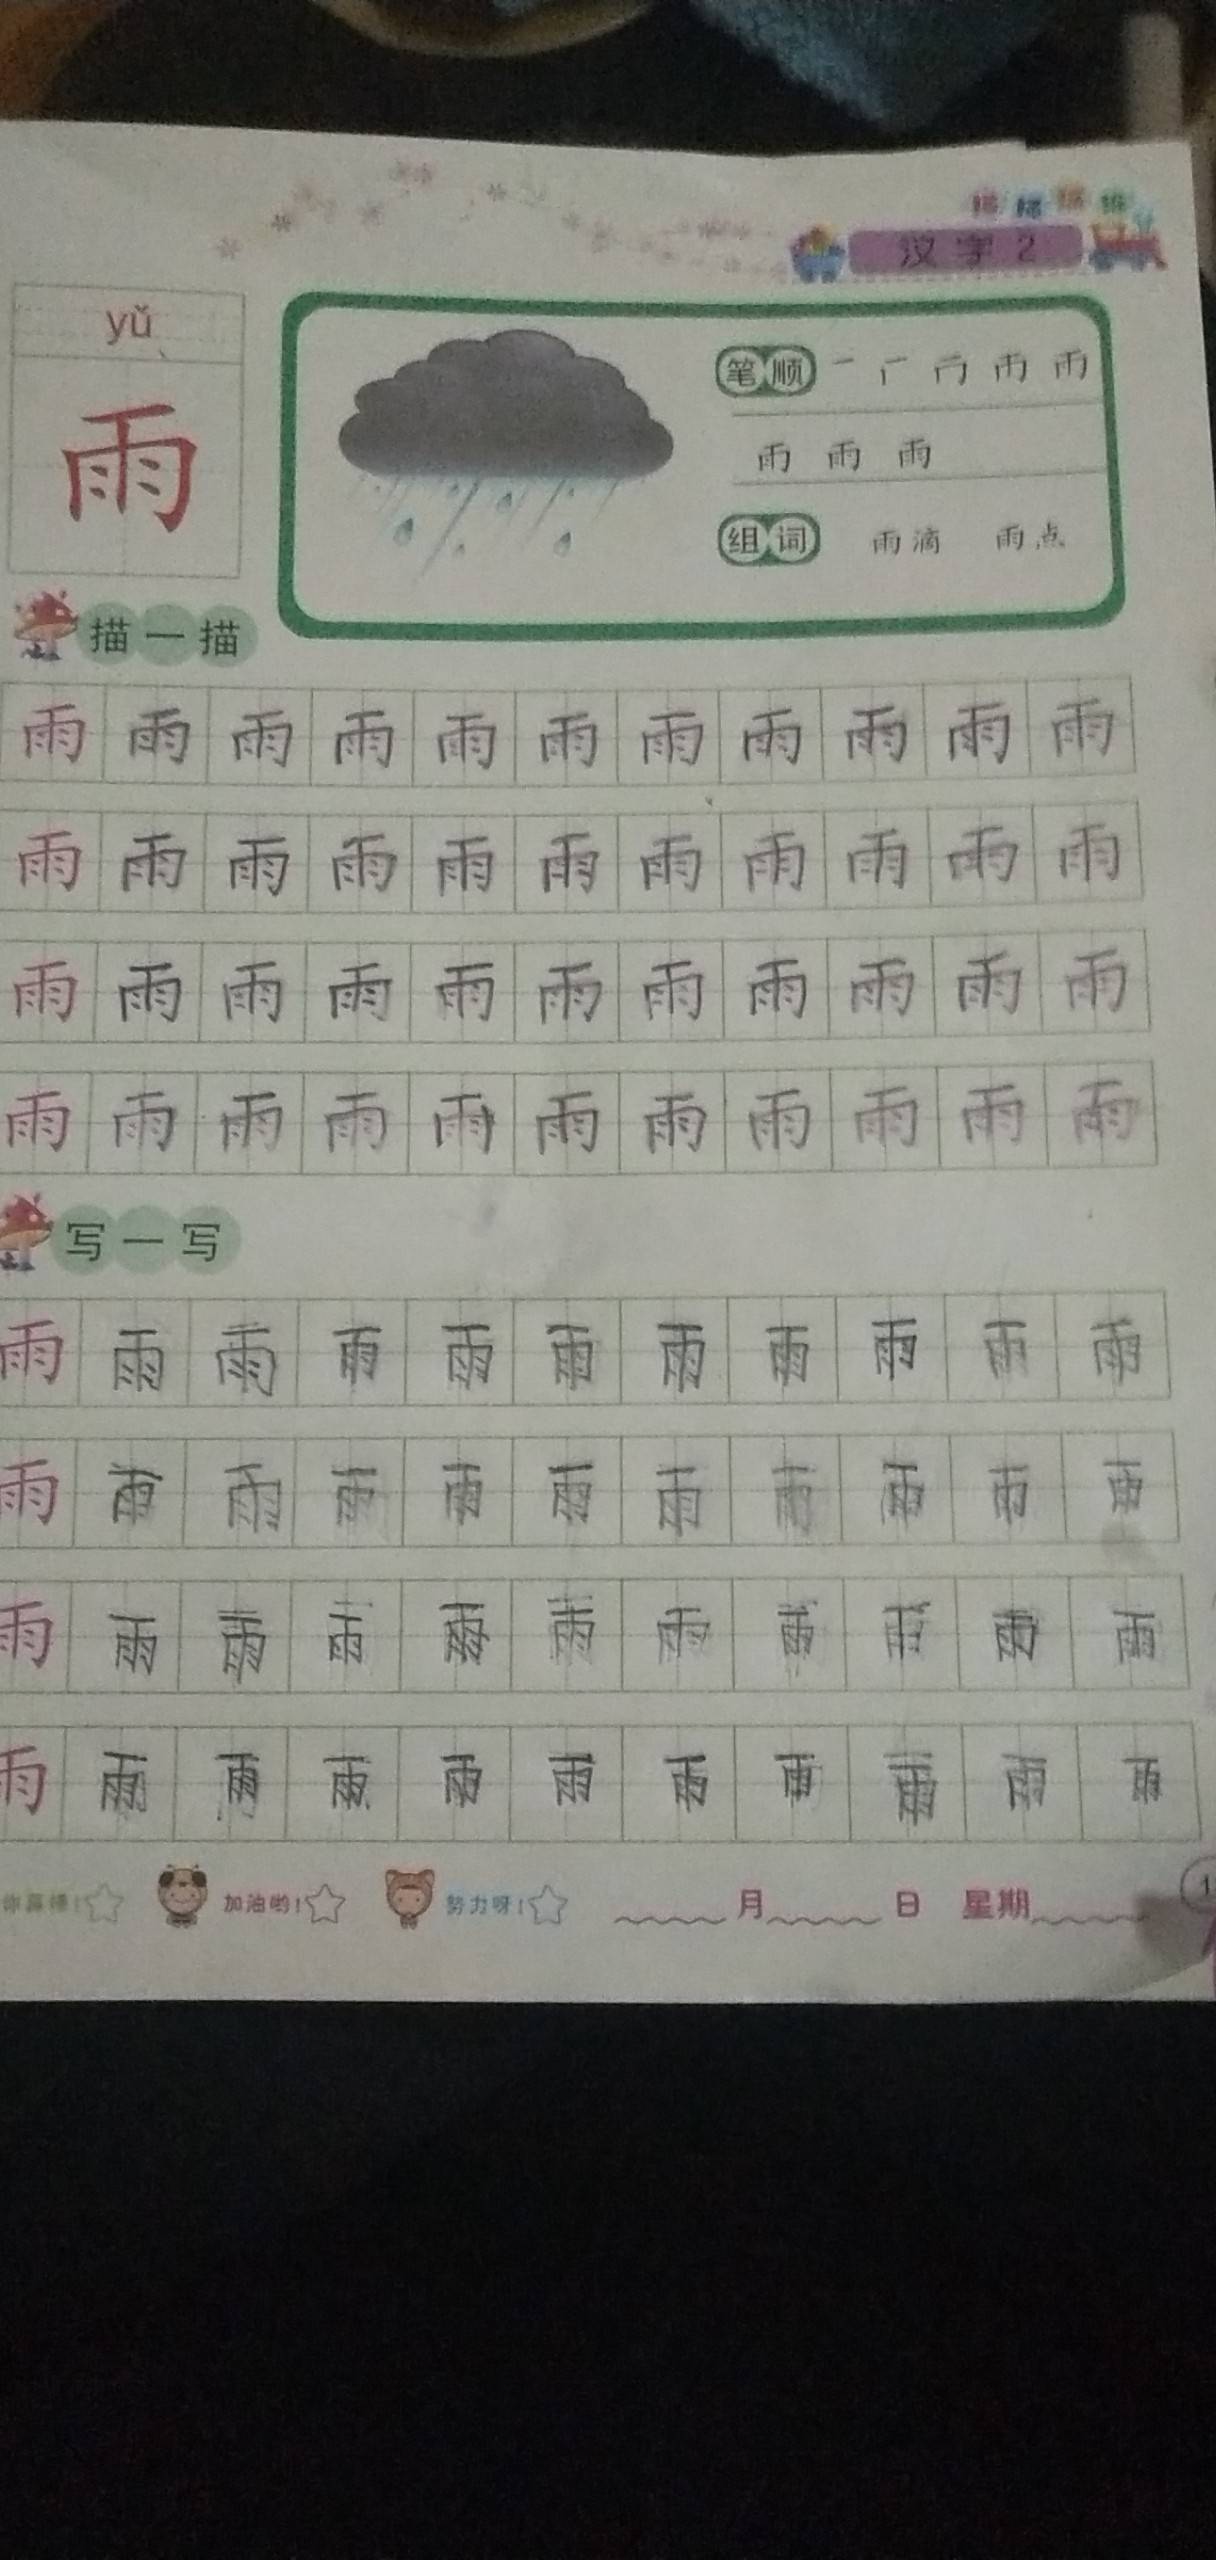 描 描 描 描
汉字2
yǔ
雨
笔顺 一 厂 冂 币 雨
雨 雨 雨
组词 雨滴 雨点
描一描
雨 雨 雨 雨 雨 雨 雨 雨 雨 雨 雨
雨 雨 雨 雨 雨 雨 雨 雨 雨 雨 雨
雨 雨 雨 雨 雨 雨 雨 雨 雨 雨 雨
雨 雨 雨 雨 雨 雨 雨 雨 雨 雨 雨
写一写
雨 雨 雨 雨 雨 雨 雨 雨 雨 雨 雨
雨 雨 雨 雨 雨 雨 雨 雨 雨 雨 雨
雨 雨 雨 雨 雨 雨 雨 雨 雨 雨 雨
雨 雨 雨 雨 雨 雨 雨 雨 雨 雨 雨
你真棒! 加油哟! 努力呀! 月 日 星期